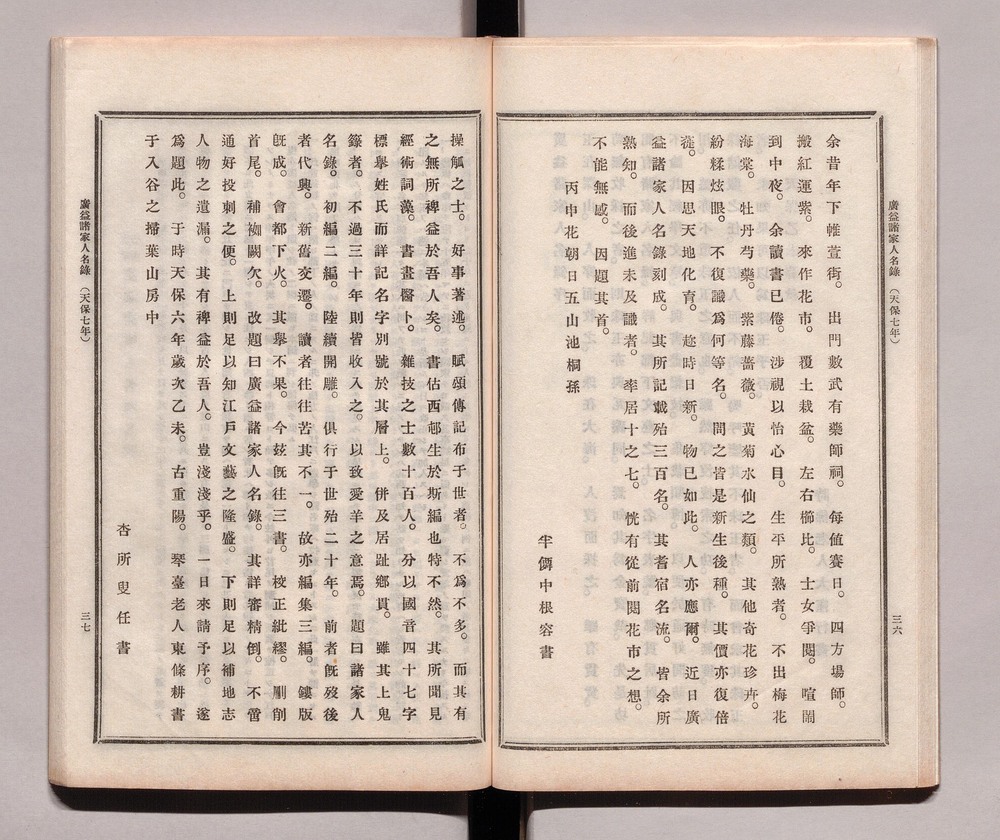 廣益諸家人名錄 (天保七年)
三六
余昔年下帷萱街。出門數武有藥師祠。每値賽日。四方場師。
搬紅運紫。來作花市。覆土栽盆。左右櫛比。士女爭閱。喧鬧
到中夜。余讀書已倦。涉視以怡心目。生平所熟者。不出梅花
海棠。牡丹芍藥。紫藤薔薇。黃菊水仙之類。其他奇花珍卉。
紛糅炫眼。不復識爲何等名。間之皆是新生後種。其價亦復倍
蓰。因思天地化育。趁時日新。物已如此。人亦應爾。近日廣
益諸家人名錄刻成。其所記載殆三百名。其耆宿名流。皆余所
熟知。而後進未及識者。率居十之七。恍有從前閱花市之想。
不能無感。因題其首。
丙申花朝日五山池桐孫
半僊中根容書
操觚之士。好事著述。賦頌傳記布于世者。不爲不多。而其有
之無所裨益於吾人矣。書估西邨生於斯編也特不然。其所聞見
經術詞藻。書畫醫卜。雜技之士數十百人。分以國音四十七字
標擧姓氏而詳記名字別號於其層上。併及居趾鄕貫。雖其上鬼
籙者。不過三十年則皆收入之。以致愛羊之意焉。題曰諸家人
名錄。初編二編。陸續開雕。俱行于世殆二十年。前者旣歿後
者代興。新舊交遷。讀者往往苦其不一。故亦編集三編。鏤版
旣成。會都下火。其擧不果。今玆旣往三書。校正紕繆。刪削
首尾。補袽闕欠。改題曰廣益諸家人名錄。其詳審精倒。不啻
通好投刺之便。上則足以知江戶文藝之隆盛。下則足以補地志
人物之遺漏。其有裨益於吾人。豈淺淺乎。一日來請予序。遂
爲題此。于時天保六年歲次乙未。古重陽。琴臺老人東條耕書
于入谷之掃葉山房中
杏所叟任書
廣益諸家人名錄 (天保七年)
三七